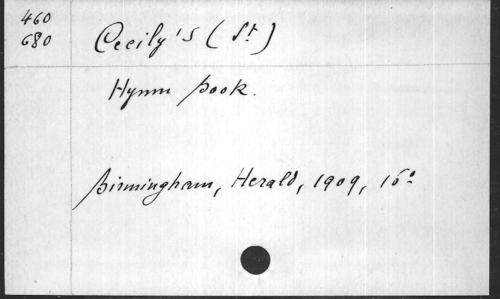 460
680
Cecily's (St)
Hymn book.
Birmingham, Herald, 1909, 16º